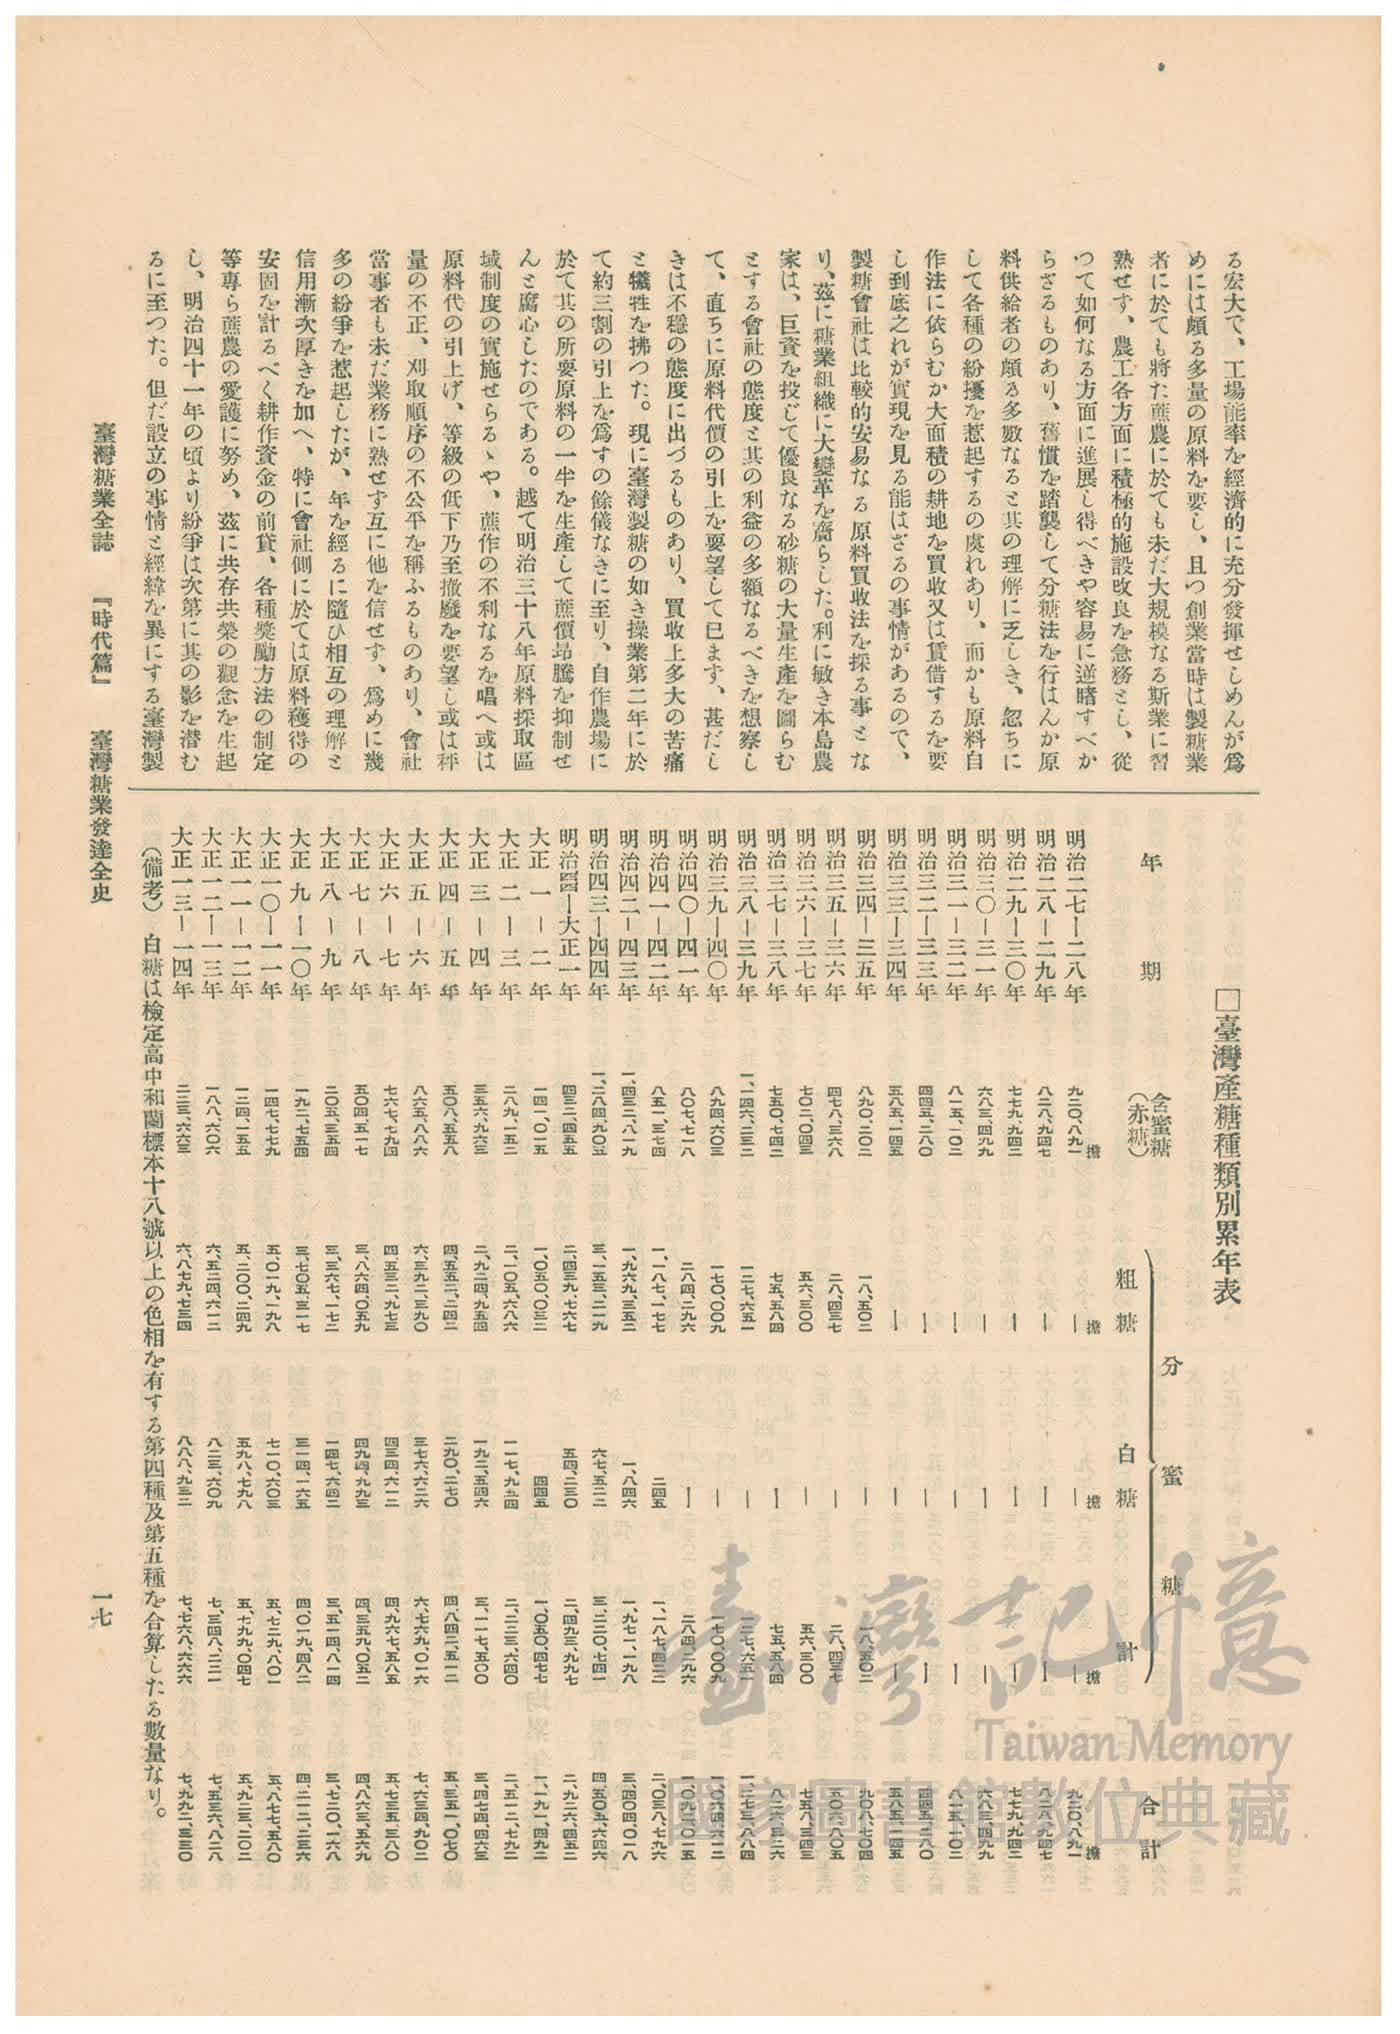 る宏大で、工場能率を經濟的に充分發揮せしめんが爲
めには頗る多量の原料を要し、且つ創業當時は製糖業
者に於ても將た蔗農に於ても未だ大規模なる斯業に習
熟せず、農工各方面に積極的施設改良を急務とし、從
つて如何なる方面に進展し得べきや容易に逆睹すべか
らざるものあり、舊慣を踏襲して分糖法を行はんか原
料供給者の頗る多數なると其の理解に乏しき、忽ちに
して各種の紛擾を惹起するの虞れあり、而かも原料自
作法に依らむか大面積の耕地を買收又は賃借するを要
し到底之れが實現を見る能はざるの事情があるので、
製糖會社は比較的安易なる原料買收法を採る事とな
り、茲に糖業組織に大變革を齎らした。利に敏き本島農
家は、巨資を投じて優良なる砂糖の大量生產を圖らむ
とする會社の態度と其の利益の多額なるべきを想察し
て、直ちに原料代價の引上を要望して已まず、甚だし
きは不穩の態度に出づるものあり、買收上多大の苦痛
と犧牲を拂つた。現に臺灣製糖の如き操業第二年に於
て約三割の引上を爲すの餘儀なきに至り、自作農場に
於て其の所要原料の一半を生產して蔗價昂騰を抑制せ
んと腐心したのである。越て明治三十八年原料採取區
域制度の實施せらるゝや、蔗作の不利なるを唱へ或は
原料代の引上げ、等級の低下乃至撤廢を要望し或は秤
量の不正、刈取順序の不公平を稱ふるものあり、會社
當事者も未だ業務に熟せず互に他を信せず、爲めに幾
多の紛爭を惹起したが、年を經るに隨ひ相互の理解と
信用漸次厚きを加へ、特に會社側に於ては原料獲得の
安固を計るべく耕作資金の前貸、各種獎勵方法の制定
等專ら蔗農の愛護に努め、茲に共存共榮の觀念を生起
し、明治四十一年の頃より紛爭は次第に其の影を潜む
るに至つた。但だ設立の事情と經緯を異にする臺灣製
□臺灣產糖種類別累年表
年期 含蜜糖(赤糖) 分蜜糖 粗糖 白糖 計 合計
明治二七―二八年 九二〇、八九一擔 ―擔 ―擔 ―擔 九二〇、八九一擔
明治二八―二九年 八二八、九四七 ― ― ― 八二八、九四七
明治二九―三〇年 七七九、九四二 ― ― ― 七七九、九四二
明治三〇―三一年 六八三、四九九 ― ― ― 六八三、四九九
明治三一―三二年 八一五、一〇二 ― ― ― 八一五、一〇二
明治三二―三三年 四四五、二八〇 ― ― ― 四四五、二八〇
明治三三―三四年 五八五、一四五 ― ― ― 五八五、一四五
明治三四―三五年 八九〇、二〇二 一八、五〇二 ― 一八、五〇二 九〇八、七〇四
明治三五―三六年 四七八、三六八 二八、四三七 ― 二八、四三七 五〇六、八〇五
明治三六―三七年 七〇二、〇四三 五六、三〇〇 ― 五六、三〇〇 七五八、三四三
明治三七―三八年 七五〇、七四二 七五、五八四 ― 七五、五八四 八二六、三二六
明治三八―三九年 一、一四六、二三二 一二七、六五一 ― 一二七、六五一 一、二七三、八八四
明治三九―四〇年 八九四、六〇三 一七〇、〇〇九 ― 一七〇、〇〇九 一、〇六四、六一二
明治四〇―四一年 八〇七、七一八 二八四、二九六 ― 二八四、二九六 一、〇九二、〇一五
明治四一―四二年 八五一、三七四 一、一八七、一七七 二四五 一、一八七、四二二 二、〇三八、七九六
明治四二―四三年 一、四三二、八一九 一、九六九、三五二 一、八四六 一、九七一、一九八 三、四〇四、〇一八
明治四三―四四年 一、二八四、九〇五 三、一五三、二一九 六七、五二二 三、二二〇、七四一 四、五〇五、六四六
明治四四―大正一年 四三二、四五五 二、四三九、七六七 五四、二三〇 二、四九三、九九七 二、九二六、四五二
大正一―二年 一四一、〇一五 一、〇五〇、〇三二 四四五 一、〇五〇、四七七 一、一九一、四九二
大正二―三年 二八九、一五二 二、一〇五、六八六 一一七、九五四 二、二二三、六四〇 二、五一二、七九二
大正三―四年 三五六、九六三 二、九二四、九五四 一九二、五四六 三、一一七、五〇〇 三、四七四、四六三
大正四―五年 五〇八、五五八 四、五五二、二四二 二九〇、二七〇 四、八四二、五一二 五、三五一、〇七〇
大正五―六年 八六五、八八六 六、三九二、三九〇 三七六、六二六 六、七六九、〇一六 七、六三四、九〇二
大正六―七年 七六七、七九四 四、五三二、九七三 四三四、六一二 四、九六七、五八五 五、七三五、三八〇
大正七―八年 五〇四、五一七 三、八六四、〇五九 四九四、九九三 四、三五九、〇五二 四、八六三、五六九
大正八―九年 二〇五、三五四 三、三六七、一七二 一四七、六四二 三、五一四、八一四 三、七二〇、一六八
大正九―一〇年 一九二、七五四 三、七〇五、三一七 三一四、一六五 四、〇一九、四八二 四、二一二、二三六
大正一〇―一一年 一四七、七七九 五、〇一九、一九八 七一〇、六〇三 五、七二九、八〇一 五、八七七、五八〇
大正一一―一二年 一二四、一五五 五、二〇〇、二四九 五九八、七九八 五、七九九、〇四七 五、九二三、二〇二
大正一二―一三年 一八八、六〇六 六、五二四、六一二 八二三、六〇九 七、三四八、二二一 七、五三六、八二八
大正一三―一四年 二二三、六六三 六、八七九、七三四 八八八、九三二 七、七六八、六六六 七、九九二、三三〇
(備考) 白糖は檢定高中和蘭標本十八號以上の色相を有する第四種及第五種を合算したる數量なり。
臺灣糖業全誌 『時代篇』 臺灣糖業發達全史
一七
臺灣記憶
Taiwan Memory
國家圖書館數位典藏